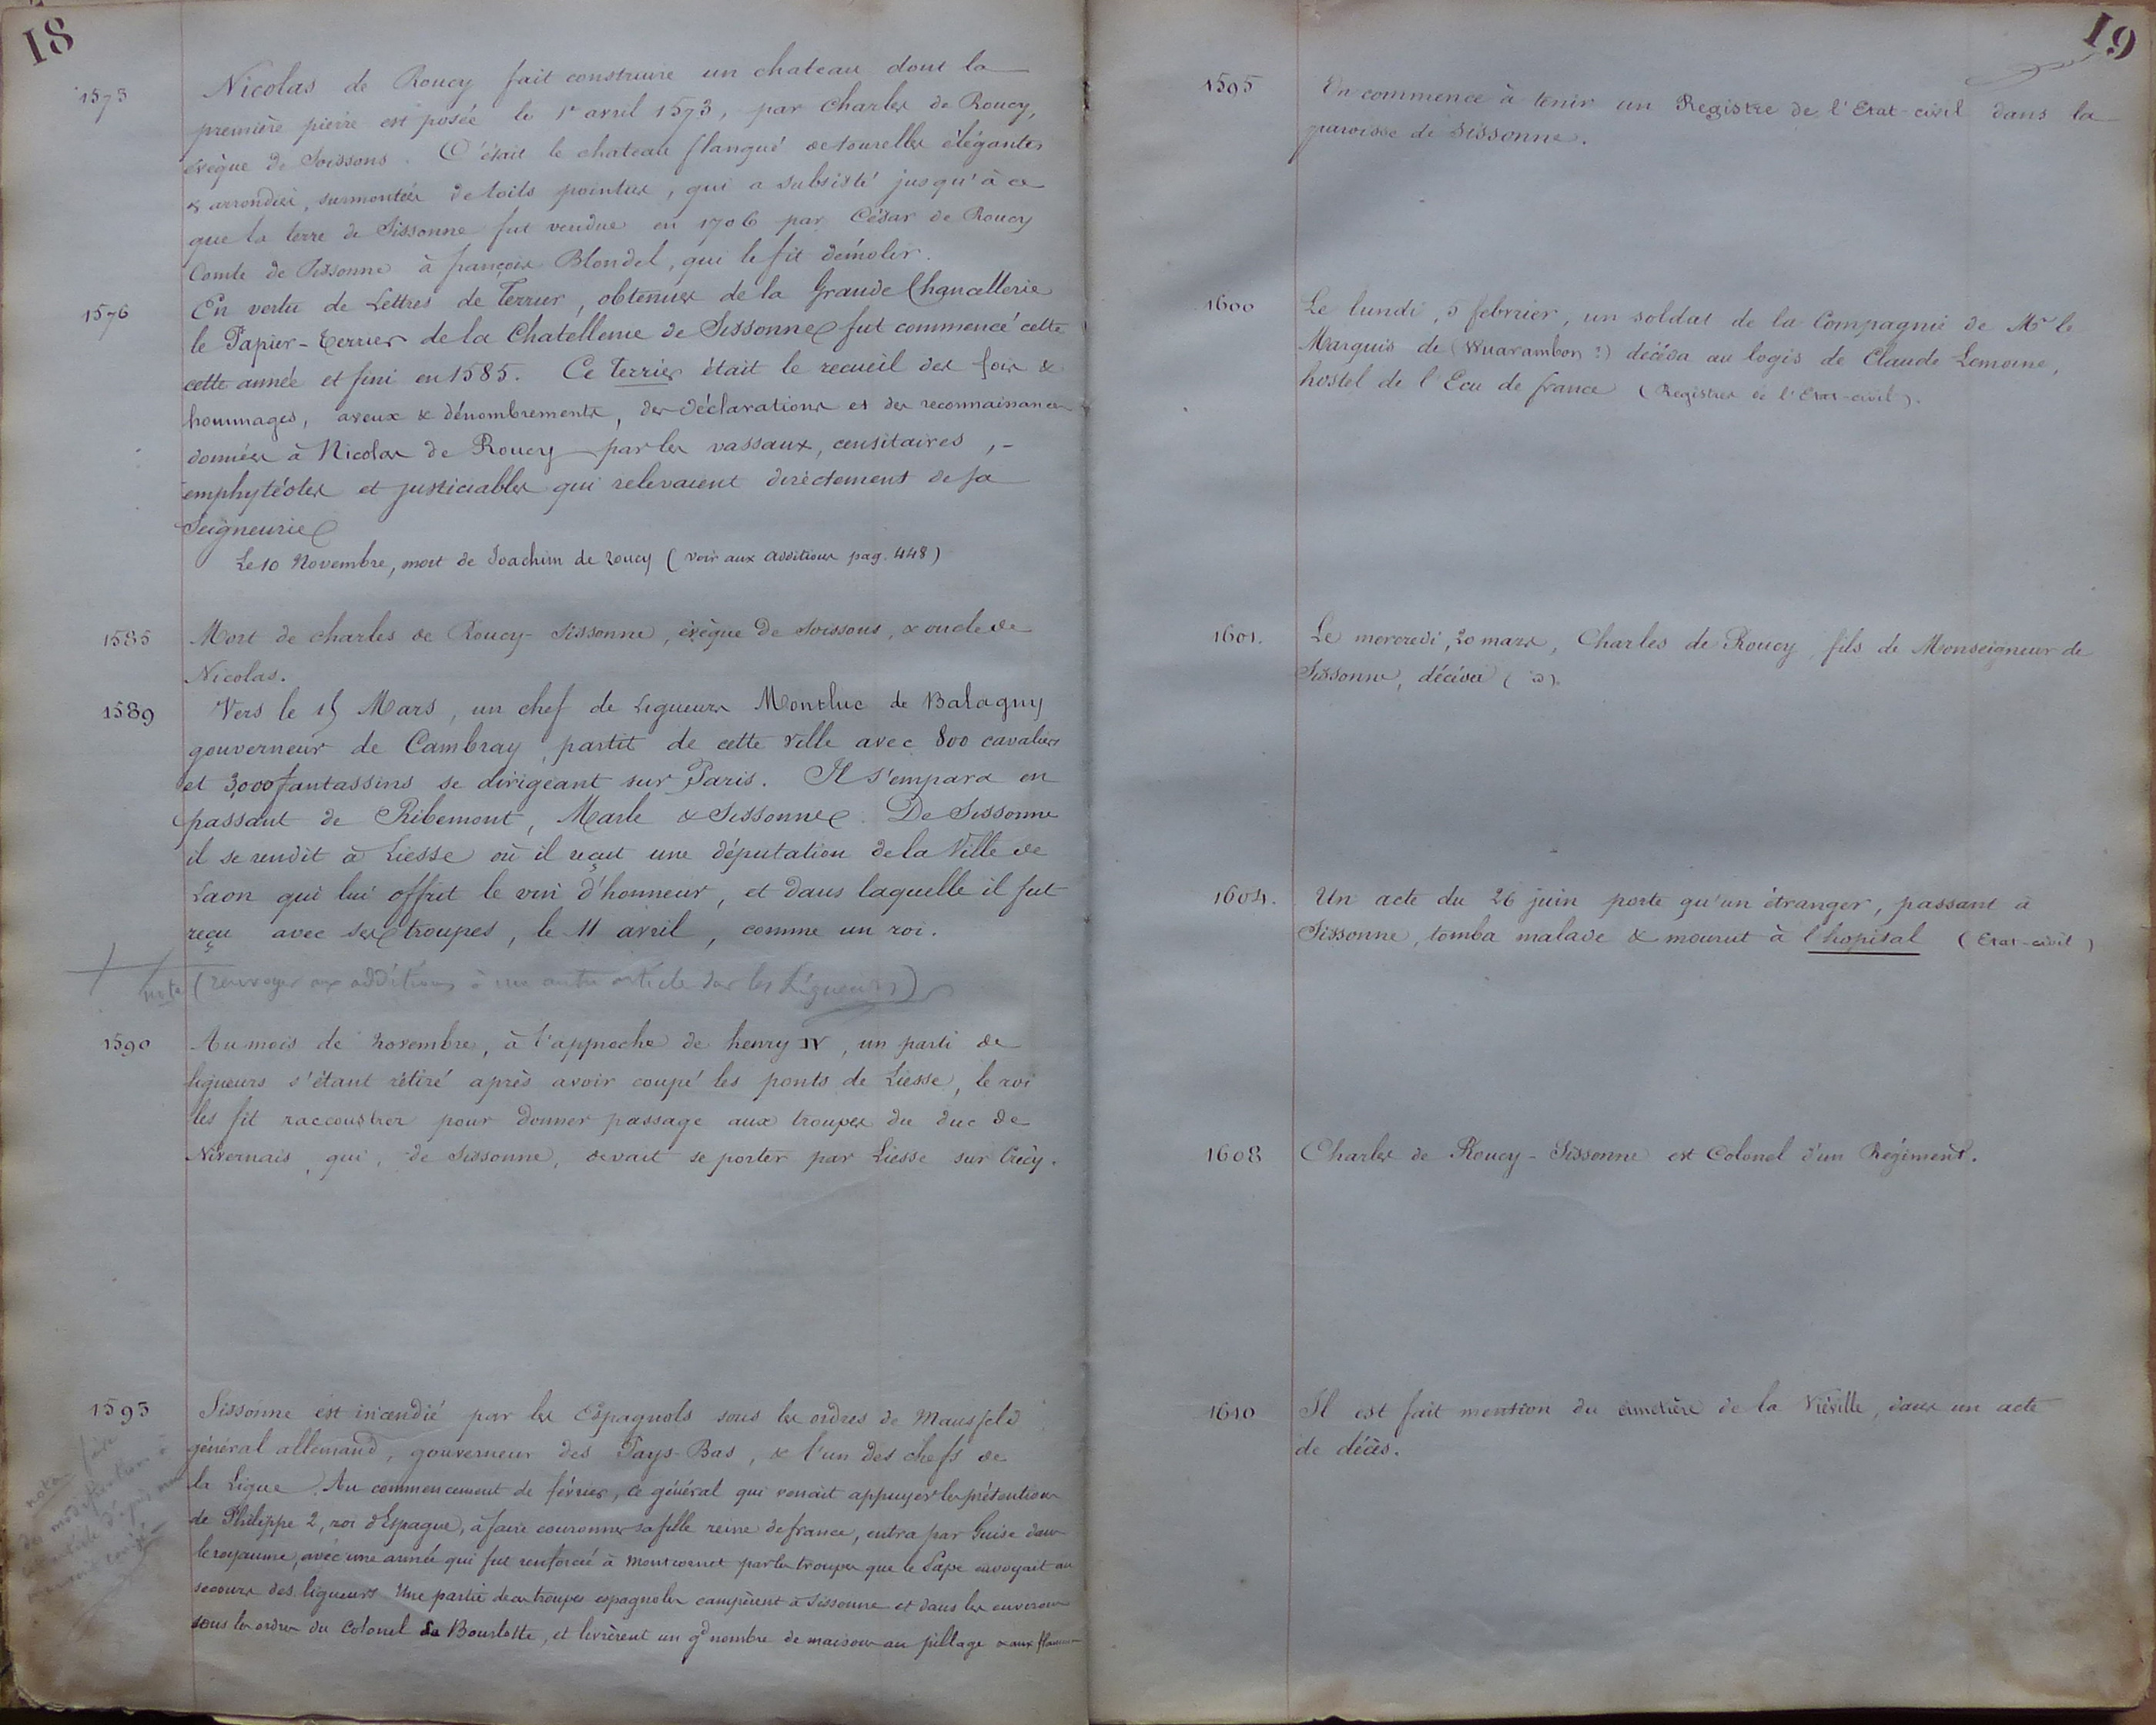 18
1573
Nicolas de Roucy fait construire un chateau dont la
première pierre est posée le 1er avril 1573, par Charles de Roucy,
évêque de Soissons. C'était le chateau flanqué de tourelles élégantes
& arrondies, surmontées de toits pointus, qui a subsisté jusqu'à ce
que la terre de Sissonne fut vendue en 1706 par César de Roucy
Comte de Sissonne à françois Blondel, qui le fit démolir.
1576
En vertu de Lettres de Terrier, obtenues de la Grande Chancellerie
le Papier-Terrier de la Chatellenie de Sissonne fut commencé cette
cette année et fini en 1585. Ce Terrier était le recueil des fois &
hommages, aveux & dénombrements, des déclarations et des reconnaissances
données à Nicolas de Roucy par les vassaux, censitaires, -
emphytéotes et justiciables qui relevaient directement de sa
Seigneurie
Le 10 Novembre, mort de Joachim de roucy (voir aux additions pag. 448)
1585
Mort de charles de Roucy-Sissonne, évêque de Soissons, & oncle de
Nicolas.
1589
Vers le 15 Mars, un chef de Ligueurs Montluc de Balagny
gouverneur de Cambray, partit de cette ville avec 800 cavaliers
et 3,000 fantassins se dirigeant sur Paris. Il s'empara en
passant de Ribemont, Marle & Sissonne. De Sissonne
il se rendit à Liesse où il reçut une députation de la Ville de
Laon qui lui offrit le vin d'honneur, et dans laquelle il fut
reçu avec ses troupes, le 11 avril, comme un roi.
note (renvoyer aux additions à un autre article sur les Ligueurs)
1590
Au mois de novembre, à l'approche de henry IV, un parti de
ligueurs s'étant rétiré après avoir coupé les ponts de Liesse, le roi
les fit raccoustrer pour donner passage aux troupes du duc de
Nivernais, qui, de Sissonne, devait se porter par Liesse sur Crécy.
1593
Sissonne est incendié par les Espagnols sous les ordres de Mansfeld
général allemand, gouverneur des Pays-Bas, & l'un des chefs de
la Ligue. Au commencement de février, ce général qui venait appuyer les prétentions
de Philippe 2, roi d'Espagne, à faire couronner sa fille reine de france, entra par Guise dans
le royaume, avec une armée qui fut renforcée à Montcornet par les troupes que le Pape envoyait au
secours des ligueurs. Une partie de ces troupes espagnoles campèrent à Sissonne et dans les environs
sous les ordres du Colonel La Bourlotte, et livrèrent un gd nombre de maisons au pillage & aux flammes
nota faire
des modifications à
19
1595
On commence à tenir un Registre de l'Etat-civil dans la
paroisse de Sissonne.
1600
Le lundi, 5 febvrier, un soldat de la Compagnie de Mr le
Marquis de (Wuarambon ?) décéda au logis de Claude Lemoine,
hostel de l'Ecu de france (Registres de l'Etat-civil).
1601.
Le mercredi, 20 mars, Charles de Roucy, fils de Monseigneur de
Sissonne, décéda (id).
1604.
Un acte du 26 juin porte qu'un étranger, passant à
Sissonne, tomba malade & mourut à l'hopital (Etat-civil)
1608
Charles de Roucy-Sissonne est Colonel d'un Régiment.
1610
Il est fait mention du cimetière de la Viéville, dans un acte
de décès.